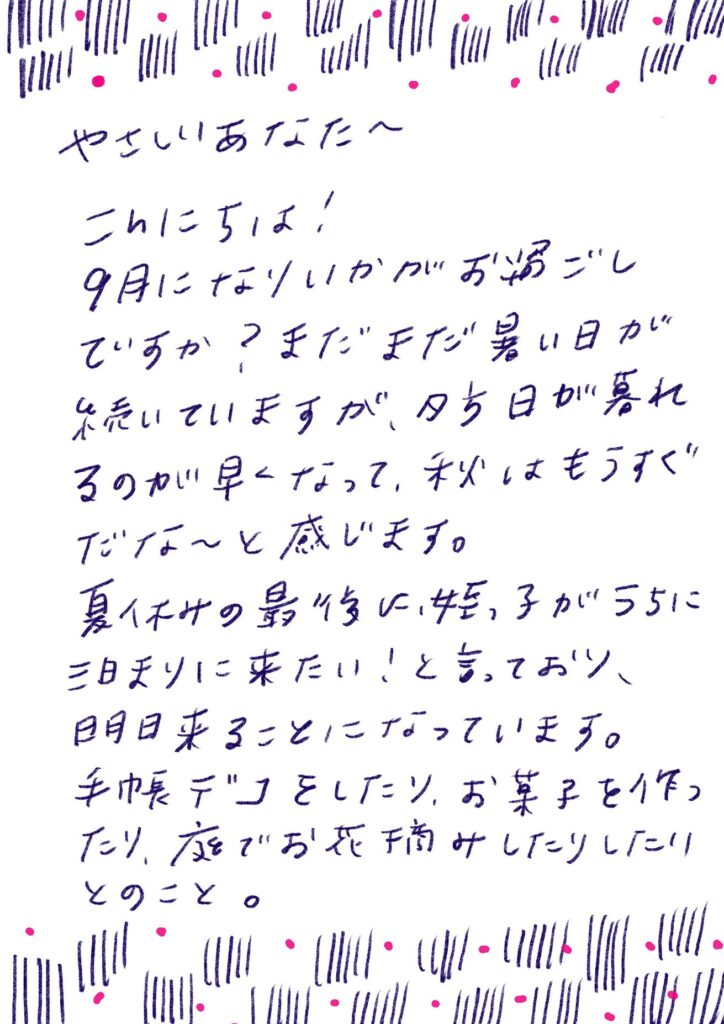 やさしいあなたへ
こんにちは！
9月になりいかがお過ごし
ですか？まだまだ暑い日が
続いていますが、夕方日が暮れ
るのが早くなって、秋はもうすぐ
だな〜と感じます。
夏休みの最後に、姪っ子がうちに
泊まりに来たい！と言っており、
明日来ることになっています。
手帳デコをしたり、お菓子を作っ
たり、庭でお花摘みしたりしたい
とのこと。